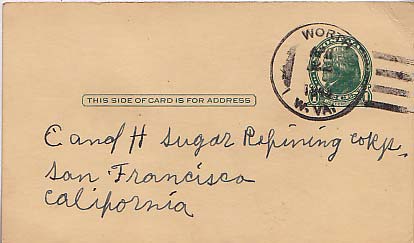 WORTH
W. VA.
THIS SIDE OF CARD IS FOR ADDRESS
C and H Sugar Refining Corp.
San Francisco
California